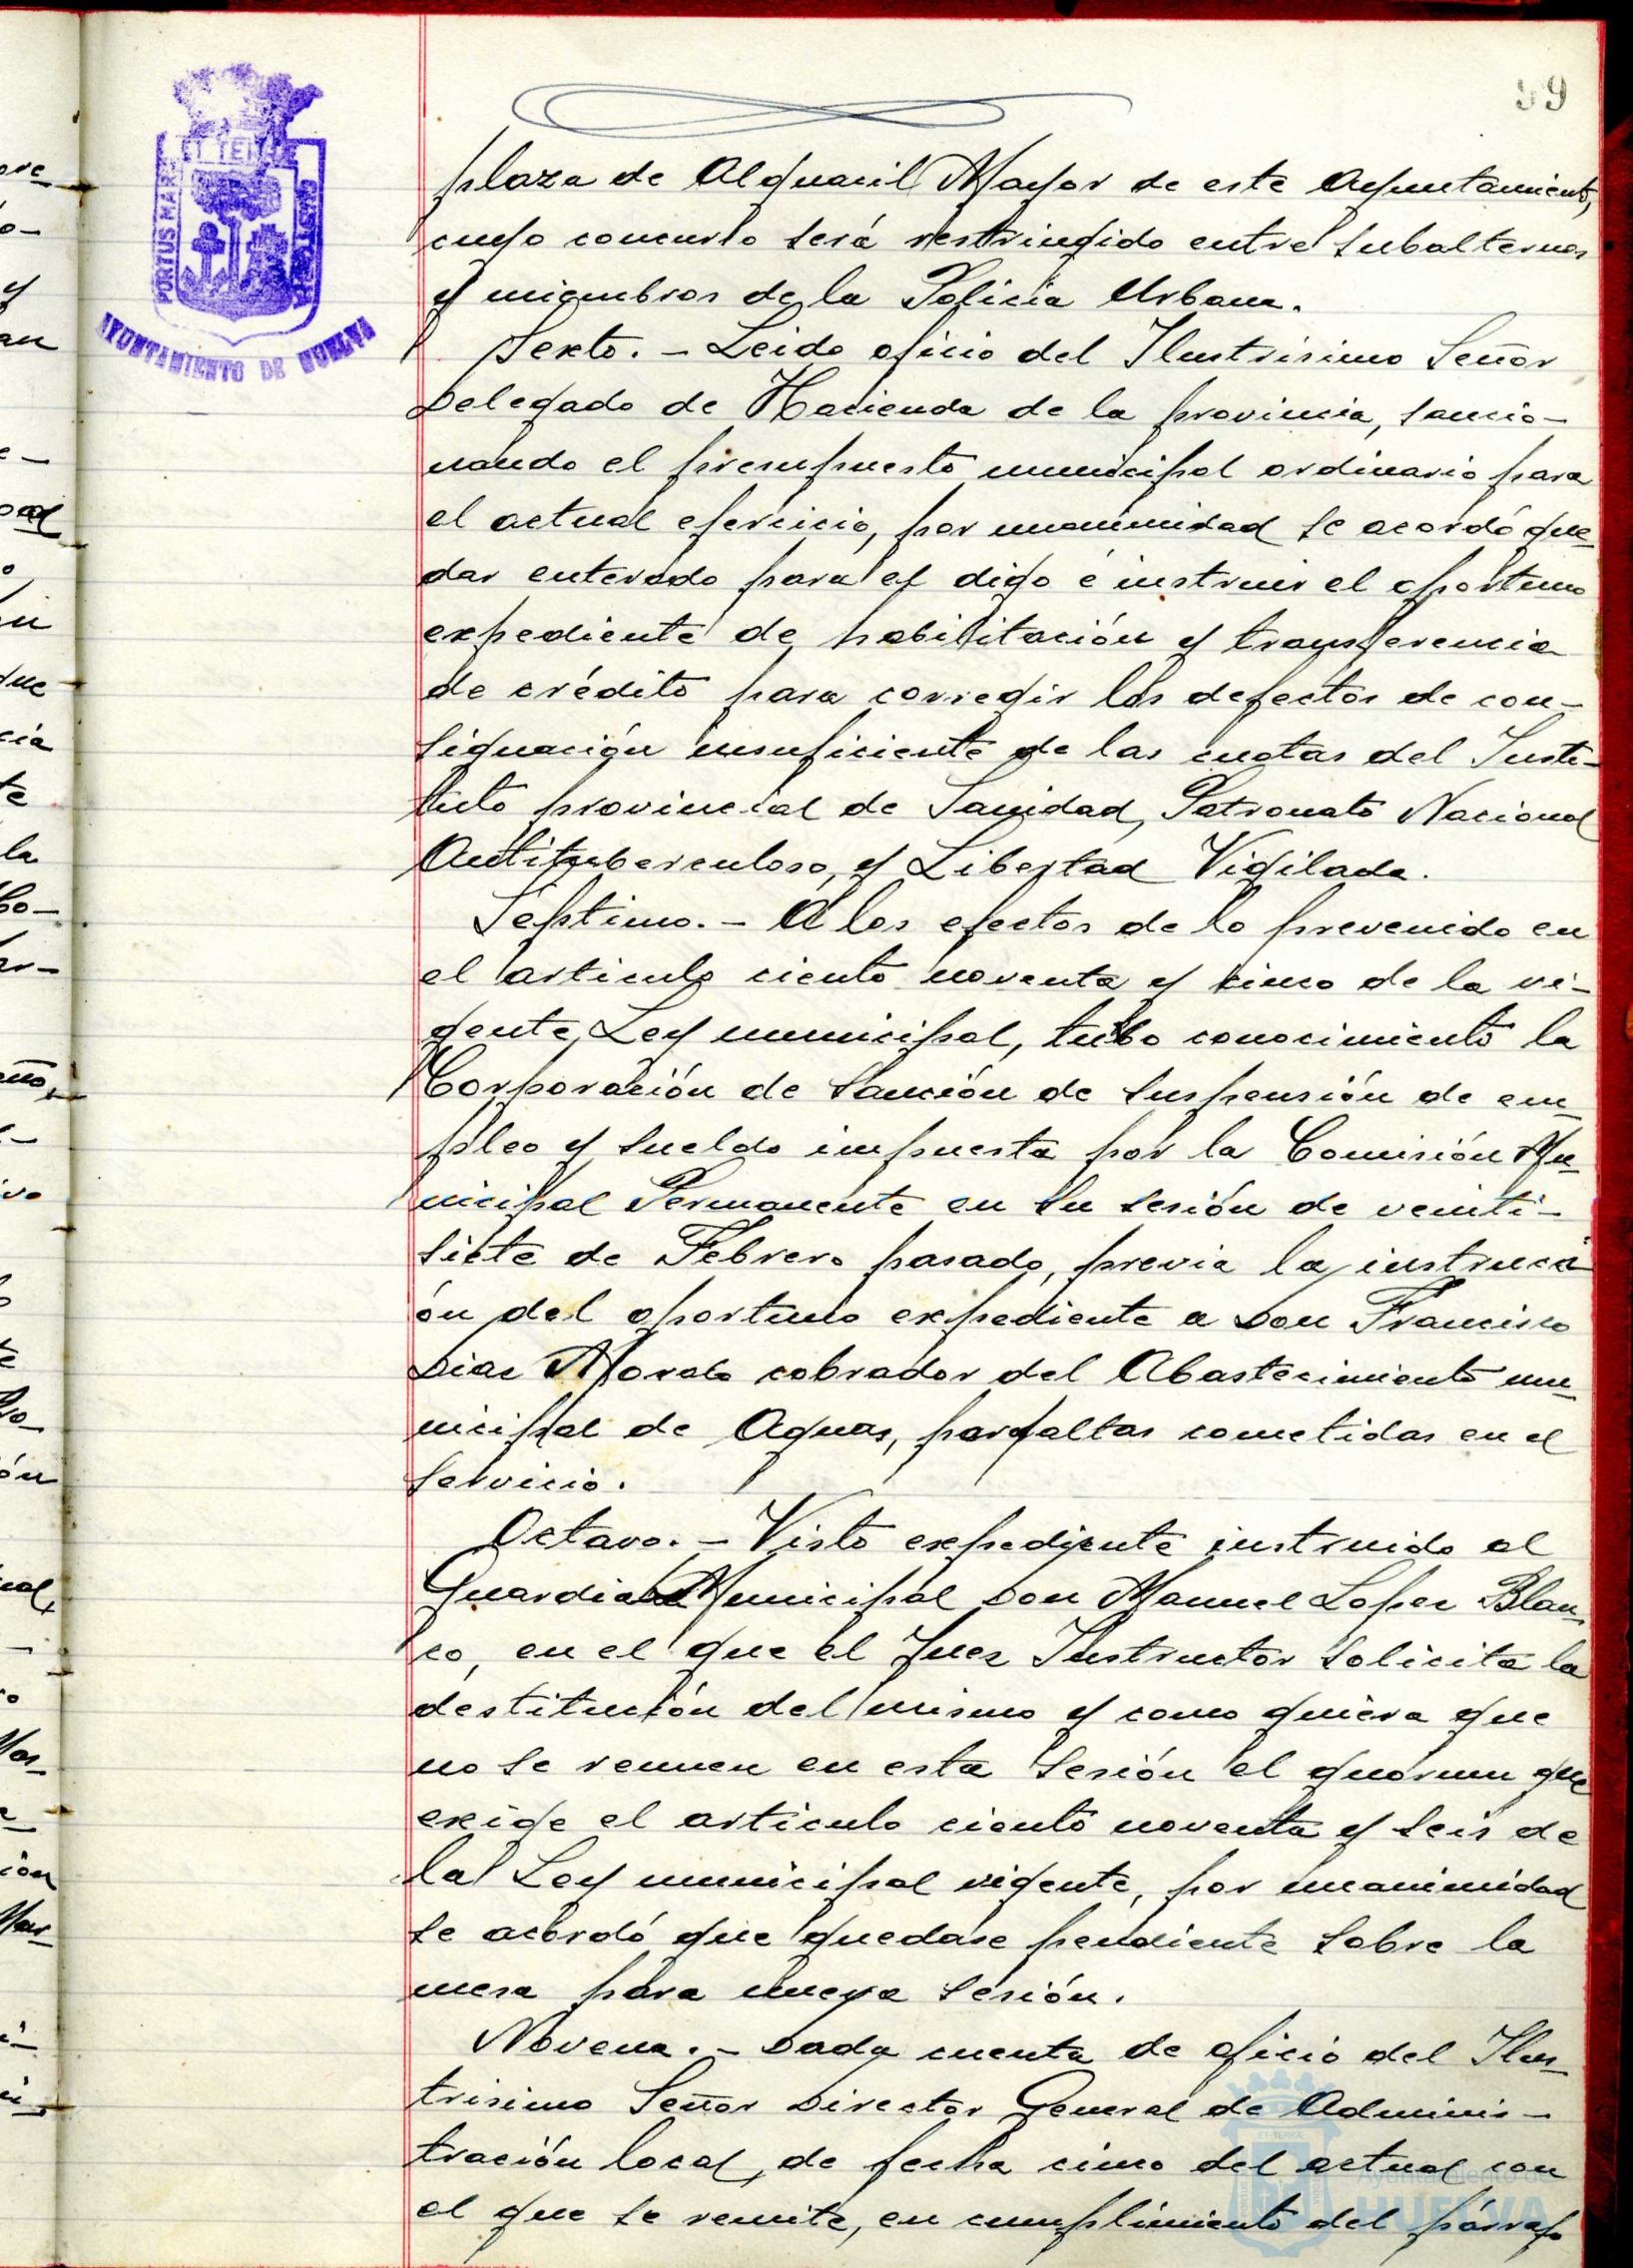 59
PORTUS MARIS ET TERRAE CUSTODIA
AYUNTAMIENTO DE HUELVA
plaza de Alguacil Mayor de este Ayuntamiento,
cuyo concurso será restringido entre subalternos
y miembros de la Policia Urbana.
Sexto. - Leido oficio del Ilustrisimo Señor
Delegado de Hacienda de la provincia, sancio-
nando el presupuesto municipal ordinario para
el actual ejercicio, por unanimidad se acordó que-
dar enterado para el digo é instruir el oportuno
expediente de habilitación y transferencia
de crédito para corregir los defectos de con-
signación insuficiente de las cuotas del Insti-
tuto provincial de Sanidad, Patronato Nacional
Antituberculoso, y Libertad Vigilada.
Septimo. - A los efectos de lo prevenido en
el articulo ciento noventa y cinco de la vi-
gente Ley municipal, tubo conocimiento la
Corporación de sanción de suspensión de em-
pleo y sueldo impuesta por la Comisión Mu-
nicipal Permanente en su sesión de veinti-
siete de Febrero pasado, previa la instrucci-
ón del oportuno expediente a Don Francisco
Diaz cobrador del Abastecimiento mu-
nicipal de Aguas, por faltas cometidas en el
servicio.
Octavo. - Visto expediente instruido al
Guardia Municipal Don Manuel Lopez Blan-
co, en el que el Juez Instructor solicita la
destitución del mismo y como quiera que
no se reunen en esta sesión el quorum que
exige el articulo ciento noventa y seis de
la Ley municipal vigente, por unanimidad
se acordó que quedase pendiente sobre la
mesa para nueva sesión.
Novena. - Dada cuenta de oficio del Ilus-
trisimo Señor Director General de Adminis-
tración local, de fecha cinco del actual con
el que se remite, en cumplimiento del párrafo
Ayuntamiento de
HUELVA